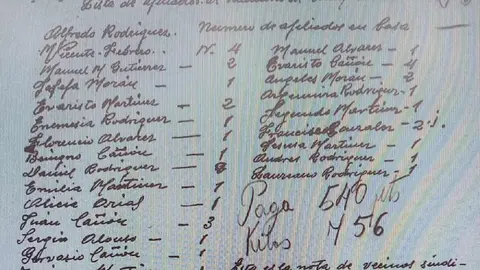 Lista de afiliados
Alfredo Rodriguez. Numero de afiliados en Casa
M. Vicente Febrero. N. 4
Manuel M Gutierrez — 2
Josefa Morán — 1
Evaristo Martinez — 2
Enemesia Rodriguez — 1
Florencio Alvares — 1
Benigno Cañón — 1
Daniel Rodriguez — 3
Emilia Martinez — 1
Alicia Arias — 1
Juán Cañón — 3
Sergio Alonso — 1
Gervasio Cañón — 1
Manuel Alvares — 1
Evaristo Cañón — 4
Angeles Morán — 2
Argemira Rodriguez — 1
Segundo Martinez — 1
Francisco Gonzales — 2
Jesusa Martinez — 1
Andres Rodriguez — 1
Laureano Rodriguez — 1
Paga 540 pts
Kilos 756
Esta es la nota de vecinos sindi-